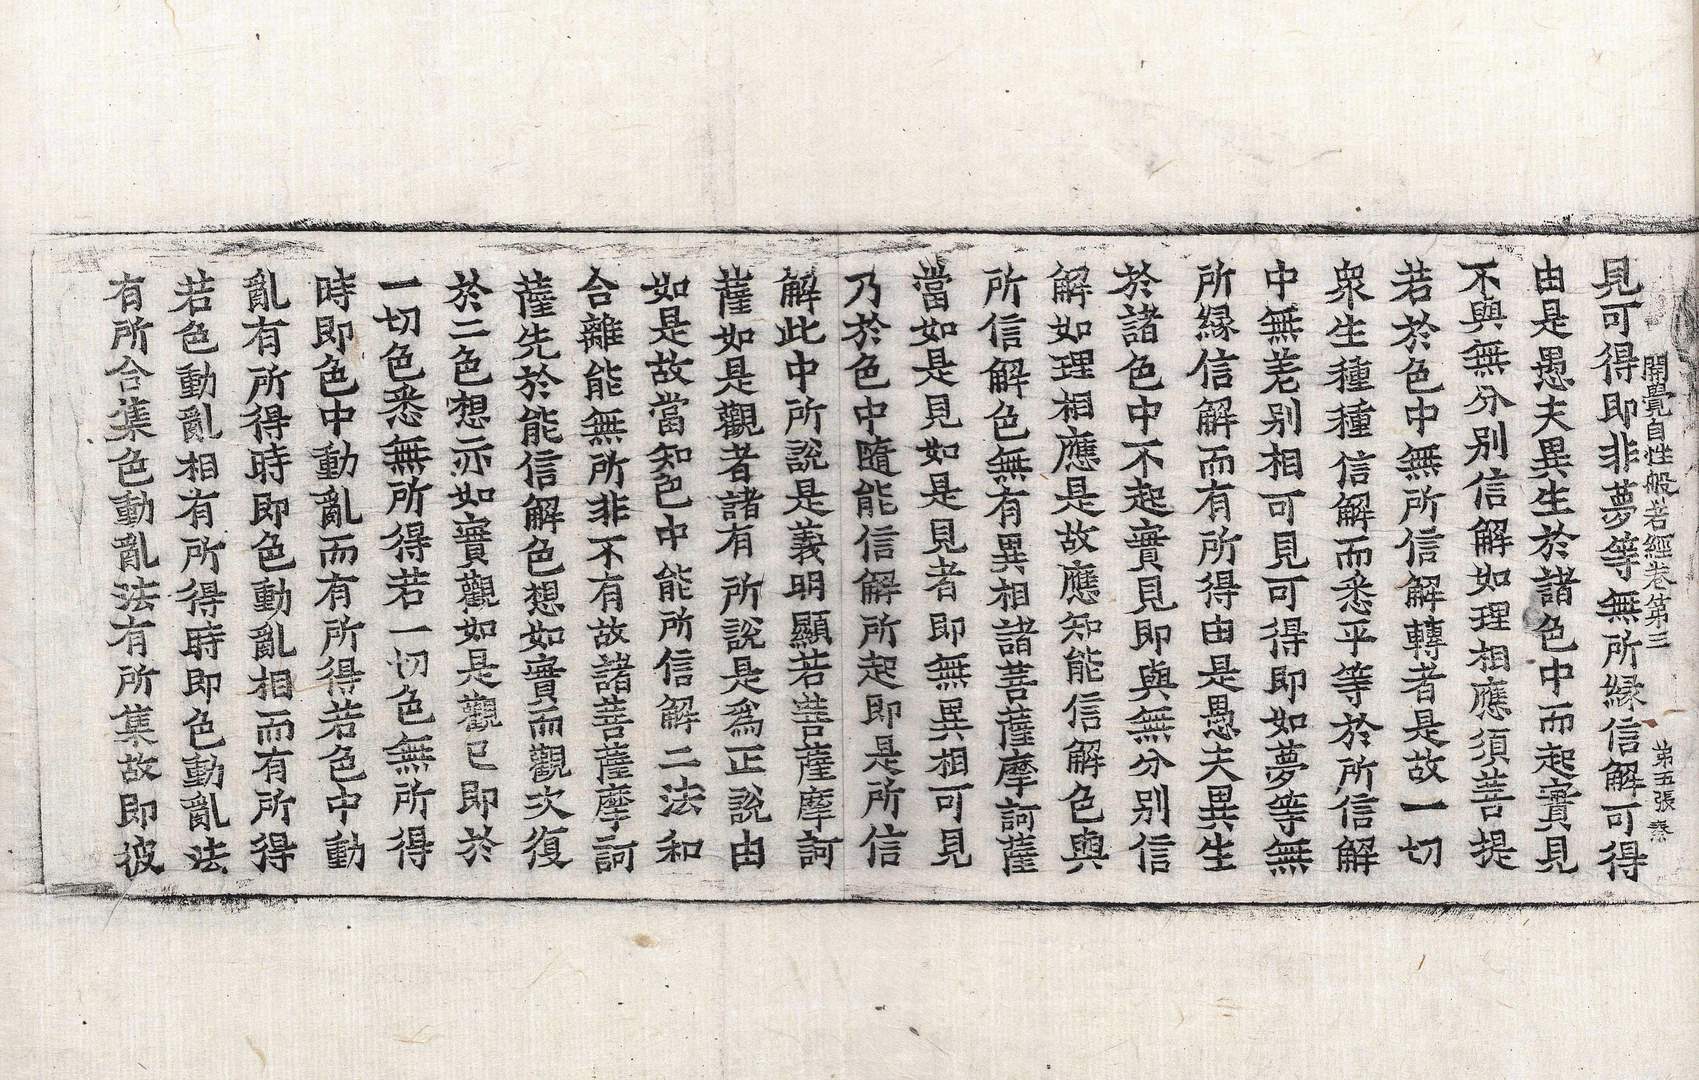 開覺自性般若經卷第三 第五張 㷱
見可得即非夢等無所縁信解可得
由是愚夫異生於諸色中而起實見
不與無分別信解如理相應須菩提
若於色中無所信解轉者是故一切
衆生種種信解而悉平等於所信解
中無差别相可見可得即如夢等無
所縁信解而有所得由是愚夫異生
於諸色中不起實見即與無分別信
解如理相應是故應知能信解色與
所信解色無有異相諸菩薩摩訶薩
當如是見如是見者即無異相可見
乃於色中隨能信解所起即是所信
解此中所說是義明顯若菩薩摩訶
薩如是觀者諸有所說是為正說由
如是故當知色中能所信解二法和
合離能無所非不有故諸菩薩摩訶
薩先於能信解色想如實而觀次復
於二色想亦如實觀如是觀已即於
一切色悉無所得若一切色無所得
時即色中動亂而有所得若色中動
亂有所得時即色動亂相而有所得
若色動亂相有所得時即色動亂法
有所合集色動亂法有所集故即彼